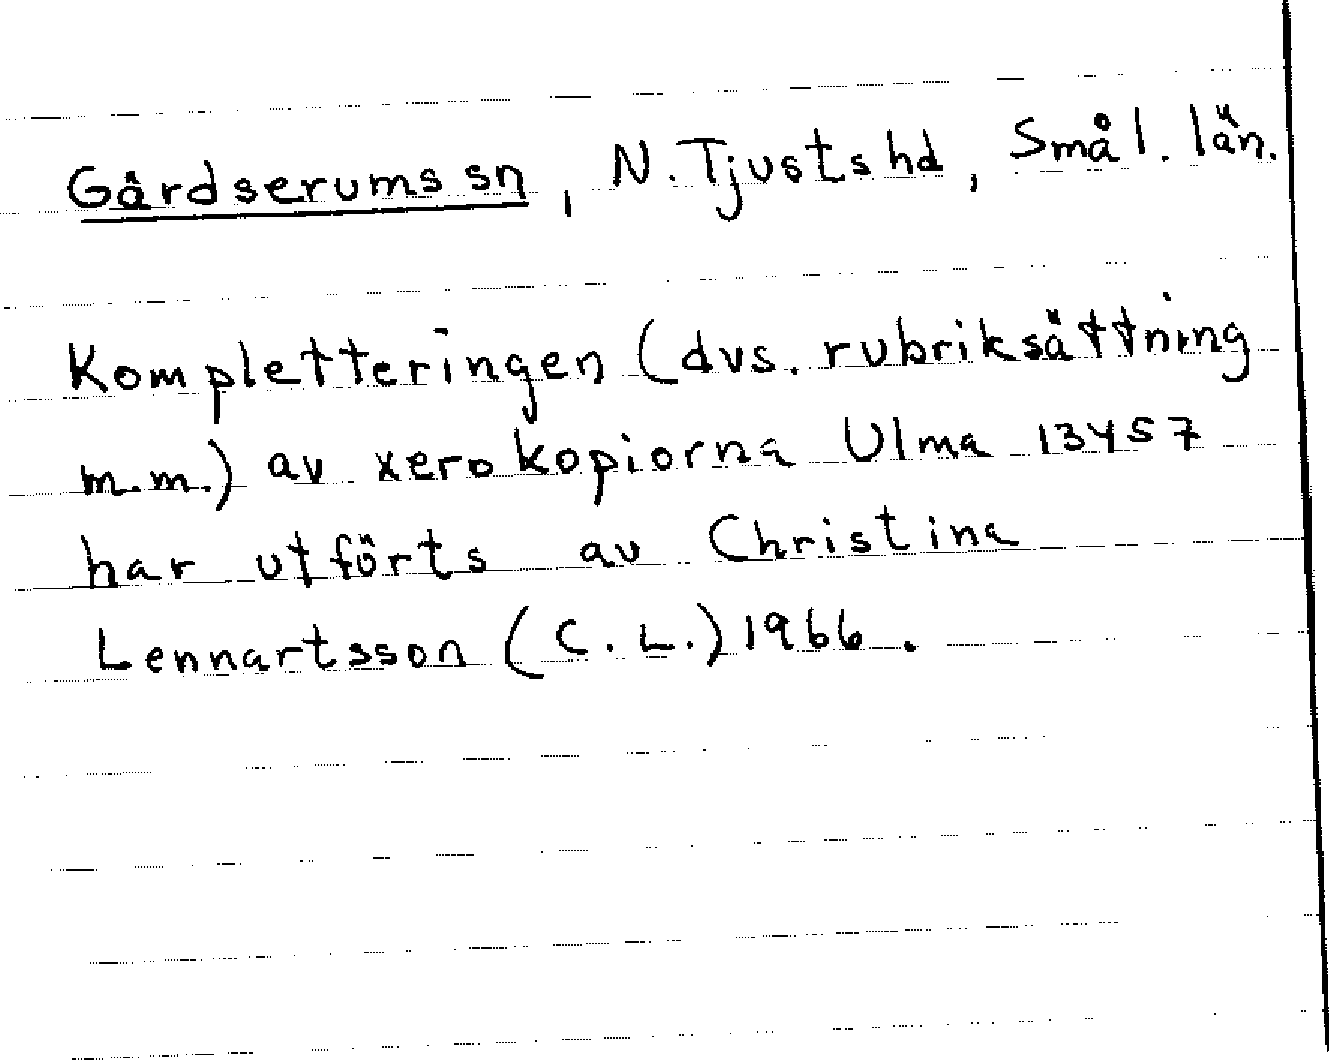 Gårdserums sn, N. Tjusts hd, Smål. län.
Kompletteringen (dvs. rubriksättning
m.m.) av xerokopiorna Ulma 13457
har utförts av Christina
Lennartsson (C. L.) 1966.